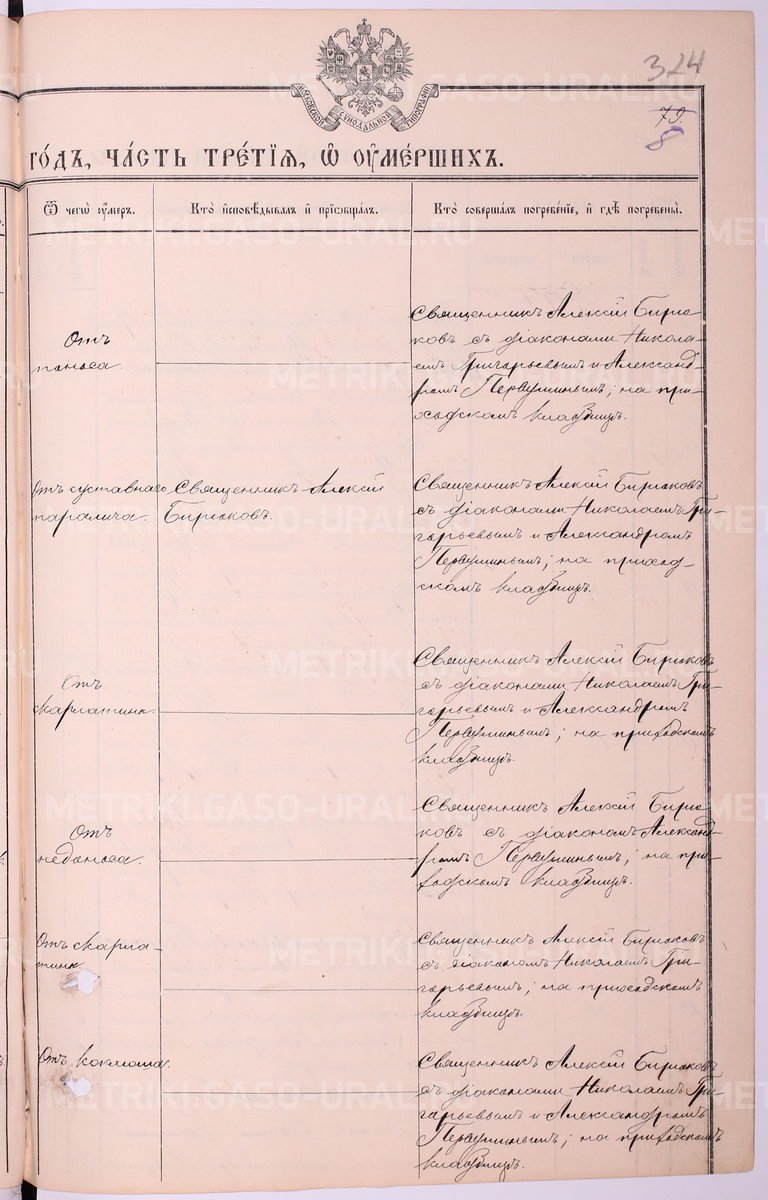 324
79.
8
МОСКОВСКОЙ СУНОДАЛЬНОЙ ТИПОГРАФИИ
го́дъ, ча́сть тре́тїѧ, ѡ҆ ᲂу҆ме́ршихъ.
Ѿ чегѡ̀ ᲂу҆́меръ.
Кто̀ и҆сповѣ́дывалъ и҆ прїѻбща́лъ.
Кто̀ соверша́лъ погребе́нїе, и҆ гдѣ̀ погребены̀.
Отъ
поноса.
Священникъ Алексій Бирю-
ковъ съ діаконами Никола-
емъ Григорьевымъ и Александ-
ромъ Первушинымъ; на при-
ходскомъ кладбищѣ.
Отъ суставнаго
паралича.
Священникъ Алексій
Бирюковъ.
Священникъ Алексій Бирюковъ
съ діаконами Николаемъ Гри-
горьевымъ и Александромъ
Первушинымъ; на приход-
скомъ кладбищѣ.
Отъ
скарлатины.
Священникъ Алексій Бирюковъ
съ діаконами Николаемъ Гри-
горьевымъ и Александромъ
Первушинымъ; на приходскомъ
кладбищѣ.
Отъ
недоноса.
Священникъ Алексій Бирю-
ковъ съ діакономъ Александ-
ромъ Первушинымъ; на при-
ходскомъ кладбищѣ.
Отъ скарла-
тины.
Священникъ Алексій Бирюковъ
съ діакономъ Николаемъ Гри-
горьевымъ; на приходскомъ
кладбищѣ.
Отъ коклюша.
Священникъ Алексій Бирюковъ
съ діаконами Николаемъ Гри-
горьевымъ и Александромъ
Первушинымъ; на приходскомъ
кладбищѣ.
METRIKI.GASO-URAL.RU